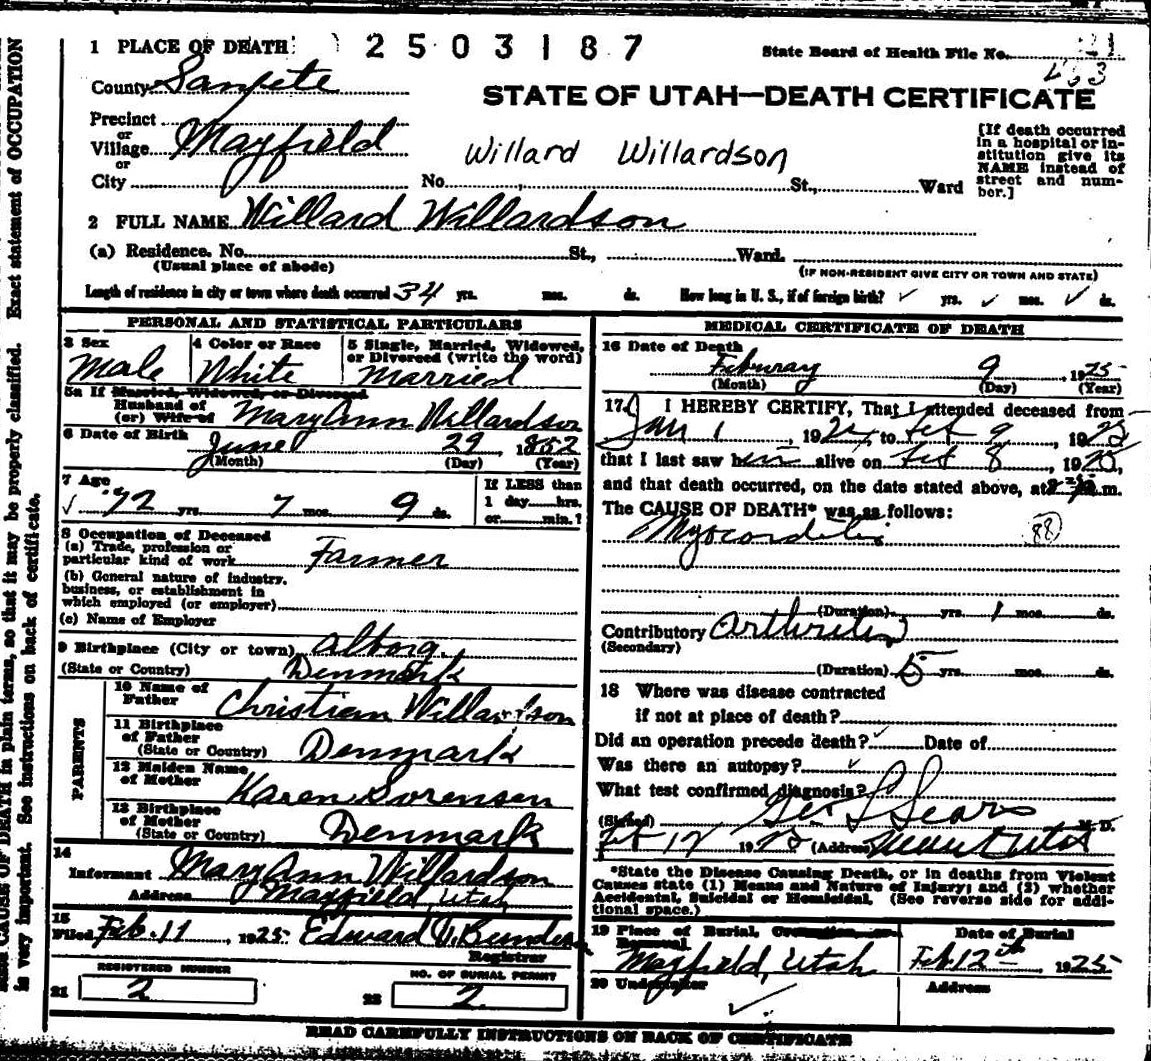 1 PLACE OF DEATH: 2503187 State Board of Health File No.
County Sanpete
STATE OF UTAH—DEATH CERTIFICATE
Precinct
or
Village Mayfield
or
City
Willard Willardson
No. St., Ward
[If death occurred
in a hospital or in-
stitution give its
NAME instead of
street and num-
ber.]
2 FULL NAME Willard Willardson
(a) Residence. No. St., Ward.
(Usual place of abode) (IF NON-RESIDENT GIVE CITY OR TOWN AND STATE)
Length of residence in city or town where death occurred 34 yrs. mos. ds. How long in U. S., if of foreign birth? ✓ yrs. ✓ mos. ✓ ds.
PERSONAL AND STATISTICAL PARTICULARS
3 Sex 4 Color or Race 5 Single, Married, Widowed,
or Divorced (write the word)
Male White Married
5a If Married, Widowed, or Divorced
Husband of
(or) Wife of Mary Ann Willardson
6 Date of Birth June 29, 1852
(Month) (Day) (Year)
7 Age If LESS than
✓ 72 yrs. 7 mos. 9 ds. 1 day hrs.
or min.?
8 Occupation of Deceased
(a) Trade, profession or
particular kind of work Farmer
(b) General nature of industry,
business, or establishment in
which employed (or employer)
(c) Name of Employer
9 Birthplace (City or town) Alborg.
(State or Country) Denmark
PARENTS
10 Name of
Father Christian Willardson
11 Birthplace
of Father
(State or Country) Denmark
12 Maiden Name
of Mother Karen Sorensen
13 Birthplace
of Mother
(State or Country) Denmark
14
Informant Mary Ann Willardson
Address Mayfield, Utah
15
Filed Feb. 11, 1925 Edward
Registrar
REGISTERED NUMBER NO. OF BURIAL PERMIT
21 2 22 2
MEDICAL CERTIFICATE OF DEATH
16 Date of Death
Feburay 9, 1925
(Month) (Day) (Year)
17. I HEREBY CERTIFY, That I attended deceased from
Jan 1, 192 to Feb 9, 192
that I last saw him alive on Feb 8, 1925,
and that death occurred, on the date stated above, at m.
The CAUSE OF DEATH* was as follows:
Myocarditis 88
(Duration) yrs. 1 mos. ds.
Contributory Arthritis
(Secondary)
(Duration) 5 yrs. mos. ds.
18 Where was disease contracted
if not at place of death?
Did an operation precede death? ✓ Date of
Was there an autopsy? ✓
What test confirmed diagnosis?
(Signed) Geo L Sears M. D.
Feb 17 1925 (Address) Utah
*State the Disease Causing Death, or in deaths from Violent
Causes state (1) Means and Nature of Injury; and (2) whether
Accidental, Suicidal or Homicidal. (See reverse side for addi-
tional space.)
19 Place of Burial, Cremation, or Date of Burial
Removal
Mayfield, Utah Feb 12th, 1925
20 Undertaker Address
✓
READ CAREFULLY INSTRUCTIONS ON BACK OF CERTIFICATE
CAUSE OF DEATH in plain terms, so that it may be properly classified. Exact statement of OCCUPATION
is very important. See instructions on back of certificate.